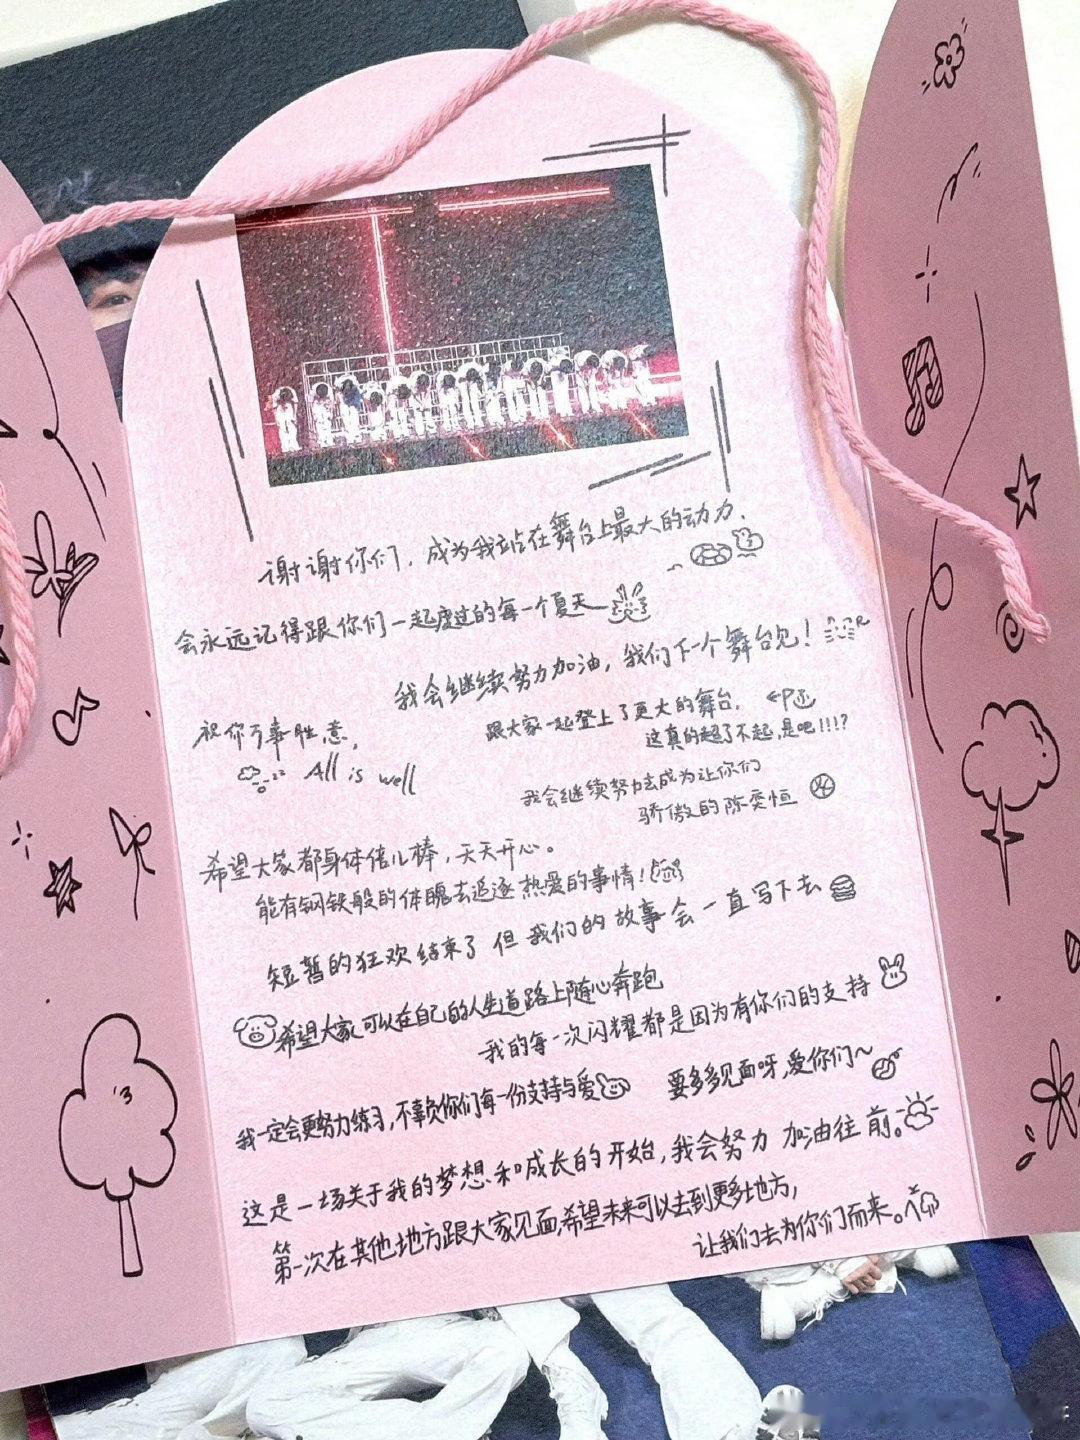 谢谢你们，成为我站在舞台上最大的动力.
会永远记得跟你们一起度过的每一个夏天
我会继续努力加油，我们下一个舞台见！
祝你万事胜意，
All is well
跟大家一起登上了更大的舞台.
这真的超了不起,是吧!!!?
我会继续努力去成为让你们
骄傲的陈奕恒
希望大家都身体倍儿棒，天天开心。
能有钢铁般的体魄去追逐热爱的事情！
短暂的狂欢结束了但我们的故事会一直写下去
希望大家可以在自己的人生道路上随心奔跑
我的每一次闪耀都是因为有你们的支持
我一定会更努力练习,不辜负你们每一份支持与爱
要多多见面呀,爱你们~
这是一场关于我的梦想和成长的开始，我会努力加油往前。
第一次在其他地方跟大家见面,希望未来可以去到更多地方，
让我们去为你们而来。